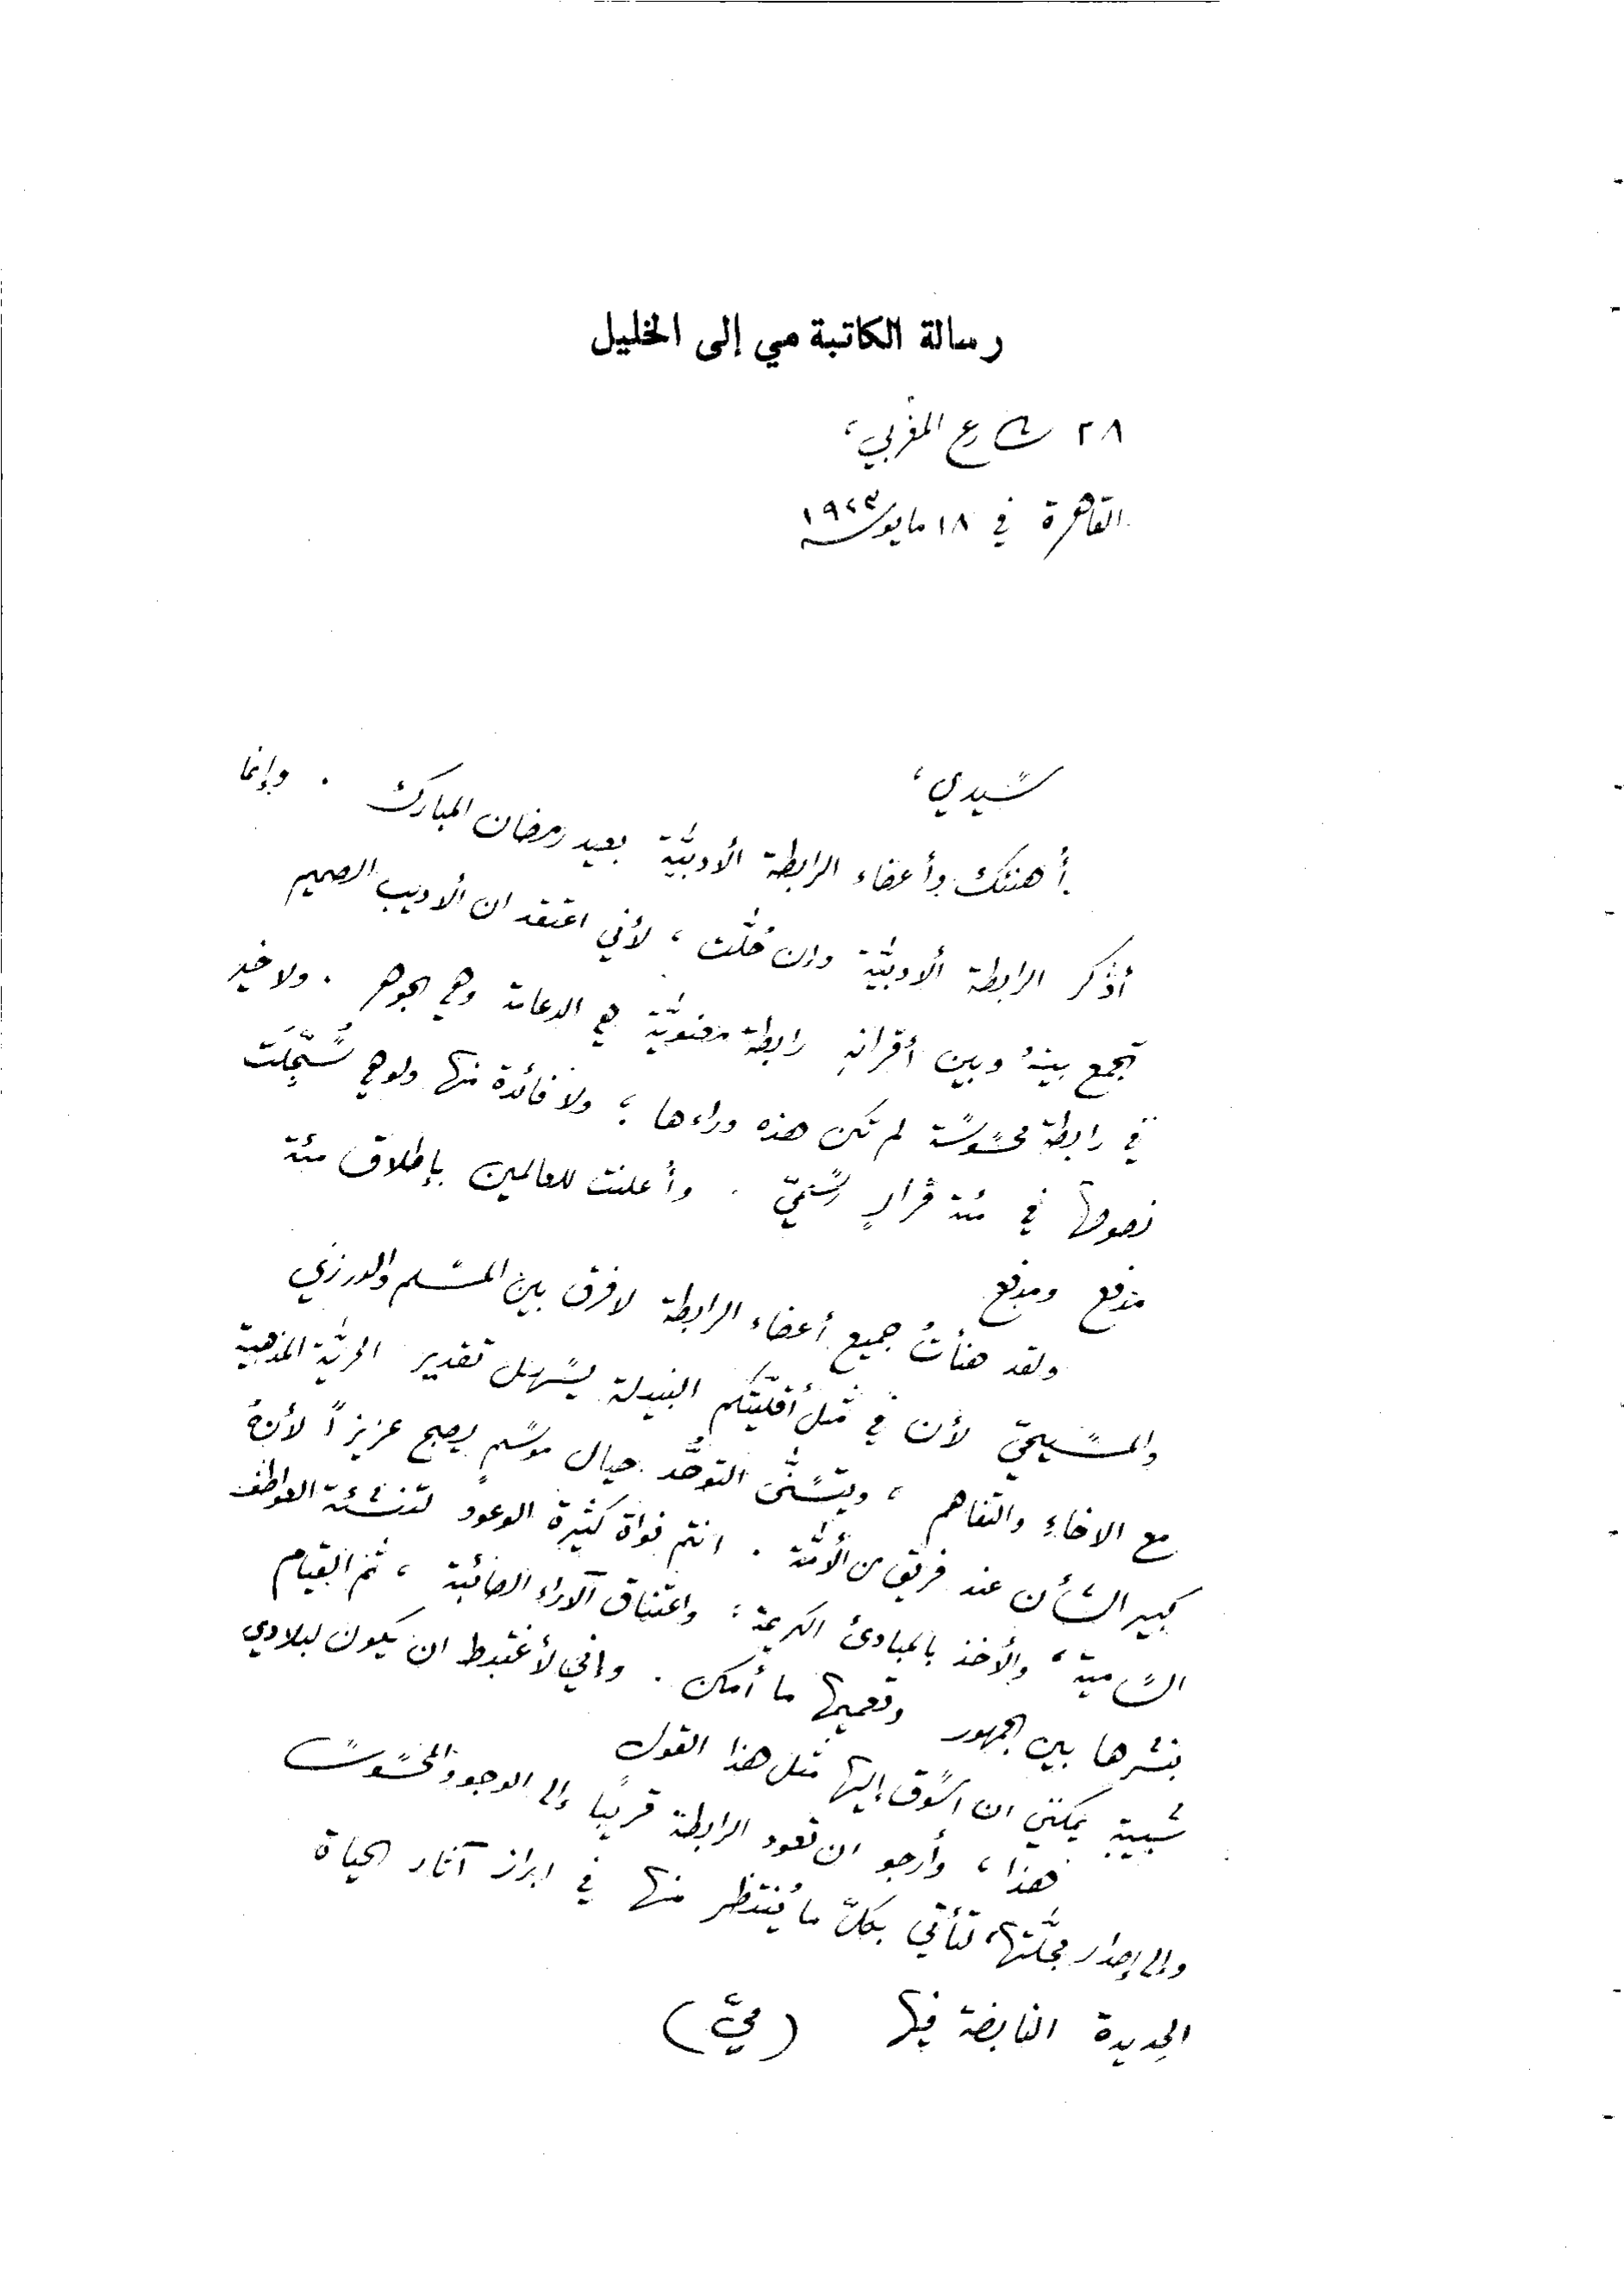 رسالة الكاتبة مي إلى الخليل
٢٨ شارع المغربي،
القاهرة في ١٨ مايو سنة ١٩٢٣
سيدي،
أهنئك وأعضاء الرابطة الأدبيَّة بعيد رمضان المبارك . وإنما
أذكر الرابطة الأدبيَّة وإن حُلَّت ، لأني اعتقد ان الأديب الصميم
تجمع بينهُ وبين أقرانهِ رابطة معنويَّة هي الدعامة وهي الجوهر . ولا خير
في رابطة محسوسة لم تكن هذه وراءها ؛ ولا فائدة منها ولو هي سُجِّلَت
نصوصها في مئة قرارٍ رسميّ . وأعلنت للعالمين بإطلاق مئة
مدفع ومدفع
ولقد هنأتُ جميع أعضاء الرابطة لا فرق بين المسلم والدرزي
والمسيحيّ لأن في مثل أقليّتكم النبيلة يسهل تقدير الحريَّة المذهبية
مع الاخاءِ والتفاهم ، ويتسنَّى التوحُّد حيال موسمٍ يصبح عزيزاً لأنهُ
كبير الشأن عند فريق من الأمَّة . انتم نواة كثيرة الوعود لتنشئة العواطف
السامية ، والأخذ بالمبادئ الكريمة ، واعتناق الآراء الصائبة ، ثم القيام
بنشرها بين الجمهور وتعميمها ما أمكن . واني لأغتبط ان يكون لبلادي
شبيبة يمكنني ان اسوق إليها مثل هذا القول
هذا ، وأرجو ان تعود الرابطة قريباً إلى الوجود المحسوس
والى إصدار مجلَّتها ، لتأتي بكلّ ما يُنتظر منها في ابراز آثار الحياة
الجديدة النابضة فيها (ميّ)